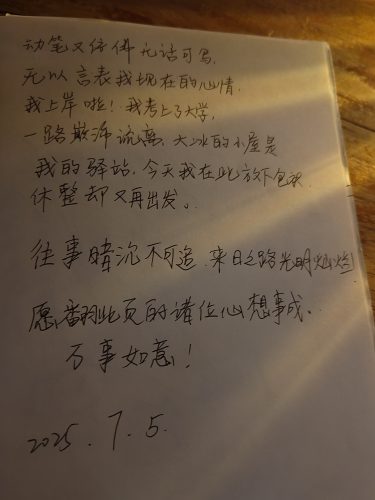 动笔又仿佛无话可写,
无以言表我现在的心情.
我上岸啦！我考上了大学,
一路颠沛流离, 大冰的小屋是
我的驿站, 今天我在此放下包袱.
休整却又再出发。
往事暗沉不可追, 来日之路光明灿烂!
愿翻到此页的诸位心想事成.
万事如意！
2025.7.5.